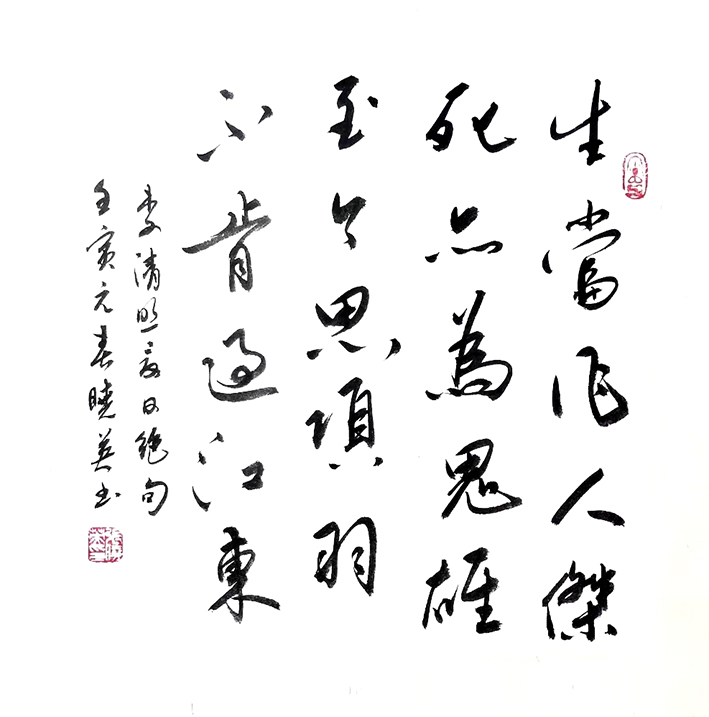 生當作人傑
死亦為鬼雄
至今思項羽
不肯過江東
李清照夏日絶句
壬寅元春曉英书